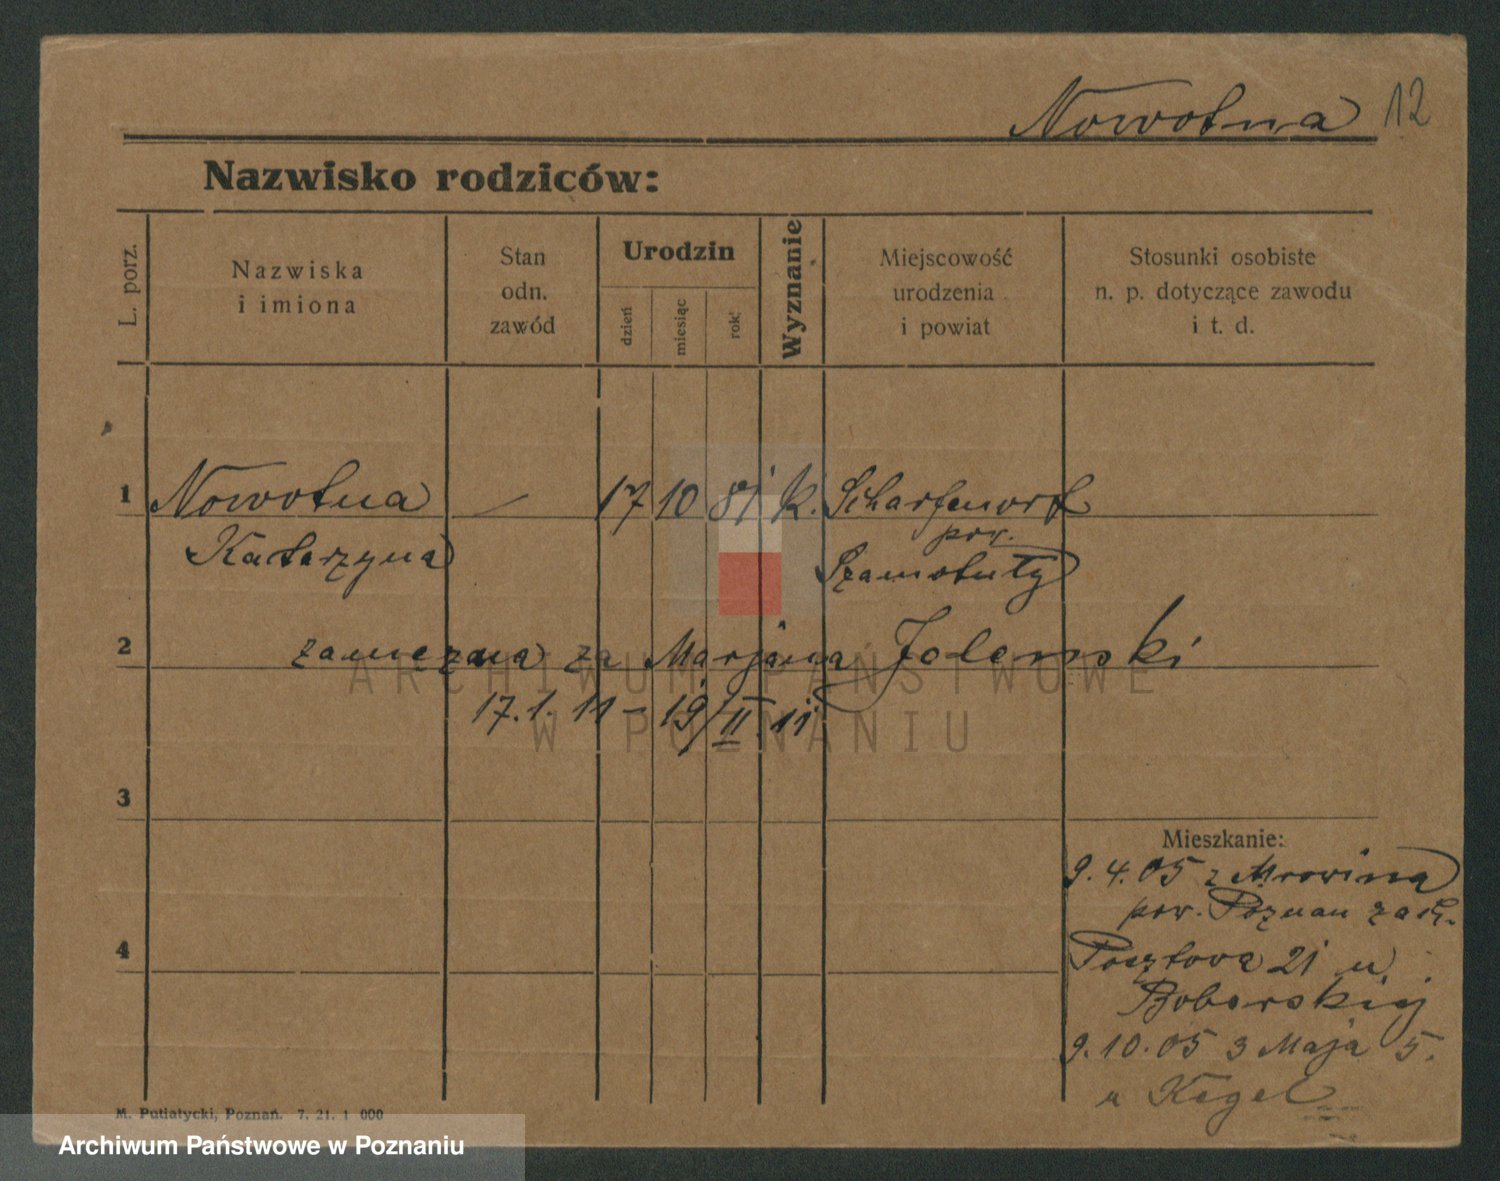 Nowotna 12
Nazwisko rodziców:
L. porz.
Nazwiska
i imiona
Stan
odn.
zawód
Urodzin
dzień
miesiąc
rok
Wyznanie
Miejscowość
urodzenia
i powiat
Stosunki osobiste
n. p. dotyczące zawodu
i t. d.
1 Nowotna — 17 10 81 k. Scharfenort
Katarzyna
pow.
Szamotuły
2 zamężna za Marjana Jolenski
17.1. 11 – 19/II 11
3
Mieszkanie:
9.4.05 z Mrowina
pow. Poznań zach.
4
Pocztowa 21 u
Boberskiej
9.10.05 3 Maja 5.
u Kegel
M. Putiatycki, Poznań. 7. 21. 1 000
ARCHIWUM PAŃSTWOWE
W POZNANIU
Archiwum Państwowe w Poznaniu